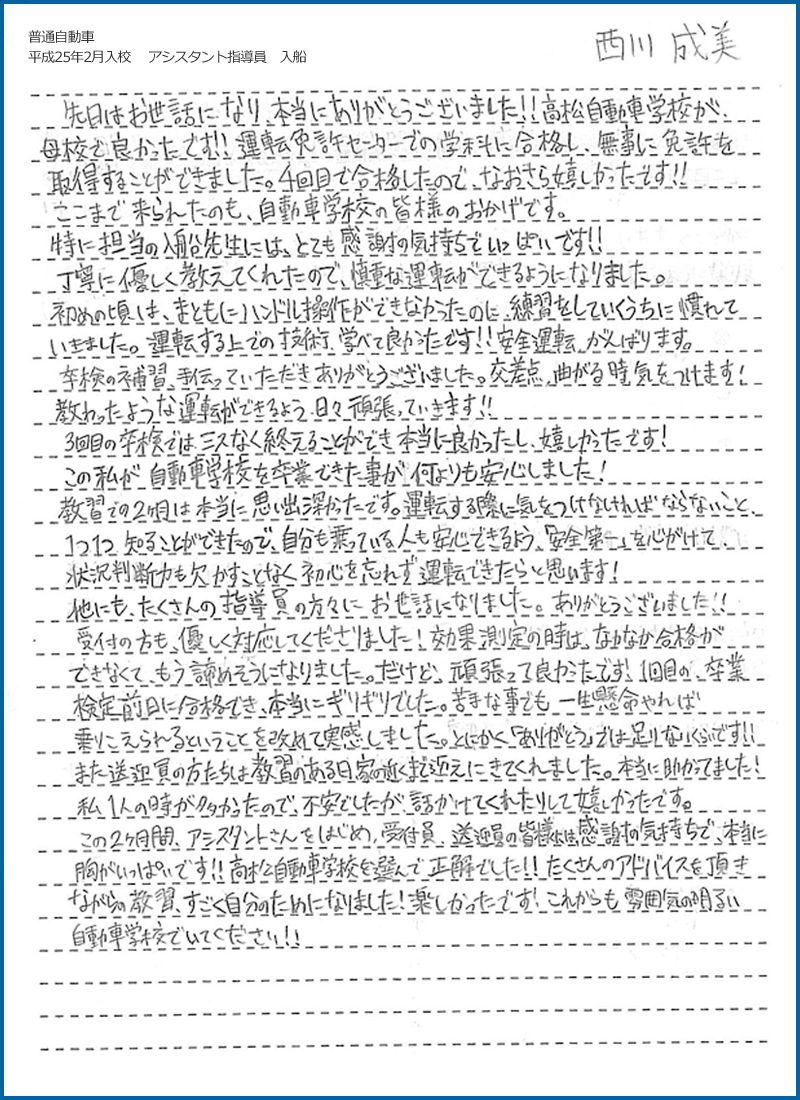 普通自動車
平成25年2月入校 アシスタント指導員 入船
西川 成美
先日はお世話になり、本当にありがとうございました!!高松自動車学校が、
母校で良かったです!!運転免許センターでの学科に合格し、無事に免許を
取得することができました。4回目で合格したので、なおさら嬉しかったです!!
ここまで来られたのも、自動車学校の皆様のおかげです。
特に担当の入船先生には、とても感謝の気持ちでいっぱいです!!
丁寧に優しく教えてくれたので、慎重な運転ができるようになりました。
初めの頃は、まともにハンドル操作ができなかったのに、練習をしていくうちに慣れて
いきました。運転する上での技術、学べて良かったです!!安全運転、がんばります。
卒検の補習、手伝っていただきありがとうございました。交差点、曲がる時気をつけます!
教わったような運転ができるよう、日々頑張っていきます!!
3回目の卒検ではミスなく終えることができ本当に良かったし、嬉しかったです!
この私が自動車学校を卒業できた事が何よりも安心しました!
教習での2ヶ月は本当に思い出深かったです。運転する際に気をつけなければならないこと、
1つ1つ知ることができたので、自分も乗っている人も安心できるよう、「安全第一」を心がけて、
状況判断力も欠かすことなく初心を忘れず運転できたらと思います!
他にも、たくさんの指導員の方々にお世話になりました。ありがとうございました!!
受付の方も、優しく対応してくださりました!効果測定の時は、なかなか合格が
できなくて、もう諦めそうになりました。だけど、頑張って良かったです!1回目の、卒業
検定前日に合格でき、本当にギリギリでした。苦手な事でも一生懸命やれば
乗りこえられるということを改めて実感しました。とにかく「ありがとう」では足りないくらいです!!
また送迎員の方たちは教習のある日家の近くまで迎えにきてくれました。本当に助かってました!
私1人の時が多かったので、不安でしたが、話かけてくれたりして嬉しかったです。
この2ヶ月間、アシスタントさんをはじめ、受付員、送迎員の皆様には感謝の気持ちで、本当に
胸がいっぱいです!!高松自動車学校を選んで正解でした!!たくさんのアドバイスを頂き
ながらの教習、すごく自分のためになりました!楽しかったです!これからも雰囲気の明るい
自動車学校でいてください!!